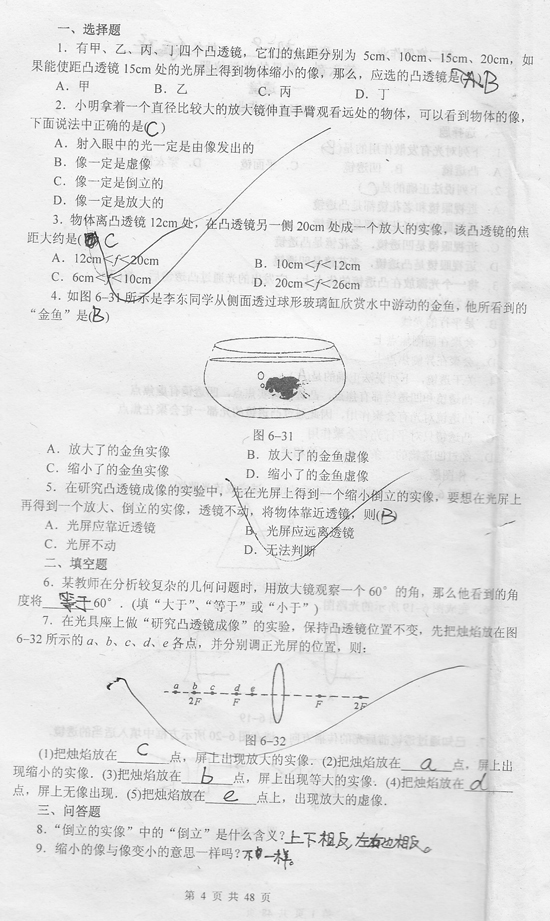 一、选择题
1．有甲、乙、丙、丁四个凸透镜，它们的焦距分别为 5cm、10cm、15cm、20cm，如
果能使距凸透镜 15cm 处的光屏上得到物体缩小的像，那么，应选的凸透镜是( B
A．甲 B．乙 C．丙 D．丁
2．小明拿着一个直径比较大的放大镜伸直手臂观看远处的物体，可以看到物体的像，
下面说法中正确的是(C)
A．射入眼中的光一定是由像发出的
B．像一定是虚像
C．像一定是倒立的
D．像一定是放大的
3．物体离凸透镜 12cm 处，在凸透镜另一侧 20cm 处成一个放大的实像，该凸透镜的焦
距大约是( C
A．12cm<f<20cm B．10cm<f<12cm
C．6cm<f<10cm D．20cm<f<26cm
4．如图 6-31 所示是李东同学从侧面透过球形玻璃缸欣赏水中游动的金鱼，他所看到的
“金鱼”是(B)
图 6-31
A．放大了的金鱼实像 B．放大了的金鱼虚像
C．缩小了的金鱼实像 D．缩小了的金鱼虚像
5．在研究凸透镜成像的实验中，先在光屏上得到一个缩小倒立的实像，要想在光屏上
再得到一个放大、倒立的实像，透镜不动，将物体靠近透镜，则(B)
A．光屏应靠近透镜 B．光屏应远离透镜
C．光屏不动 D．无法判断
二、填空题
6．某教师在分析较复杂的几何问题时，用放大镜观察一个 60°的角，那么他看到的角
度将 等于 60°．(填“大于”、“等于”或“小于”)
7．在光具座上做“研究凸透镜成像”的实验，保持凸透镜位置不变，先把烛焰放在图
6-32 所示的 a、b、c、d、e 各点，并分别调正光屏的位置，则：
a b c d e
2F F F 2F
图 6-32
(1)把烛焰放在 c 点，屏上出现放大的实像．(2)把烛焰放在 a 点，屏上出
现缩小的实像．(3)把烛焰放在 b 点，屏上出现等大的实像．(4)把烛焰放在 d
点，屏上无像出现．(5)把烛焰放在 e 点上，出现放大的虚像．
三、问答题
8．“倒立的实像”中的“倒立”是什么含义？上下相反，左右也相反。
9．缩小的像与像变小的意思一样吗？不一样。
第 4 页 共 48 页